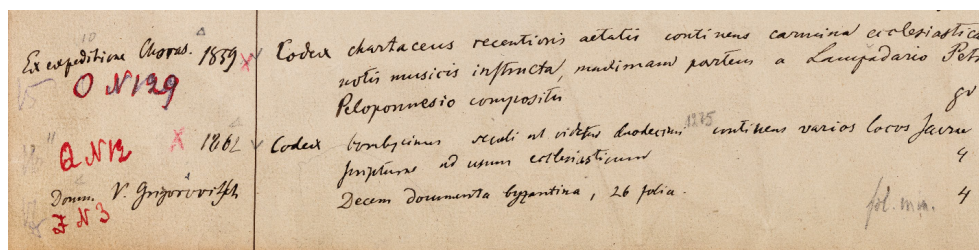 10
Ex expeditione Choras. 1859 Codex chartaceus recentioris aetatis continens carmina ecclesiastica
notis musicis instructa, maximam partem a Lampadario Petr
O N 129
Peloponnesio composita
11
1862 Codex bombycinus seculi ut videtur duodecimi 1275 continens varios locos sacrae
Q N 12
scripturae ad usum ecclesiasticum 4
Donum. V. Grigorovitsch Decem documenta byzantina, 26 folia. 4
Z N 3